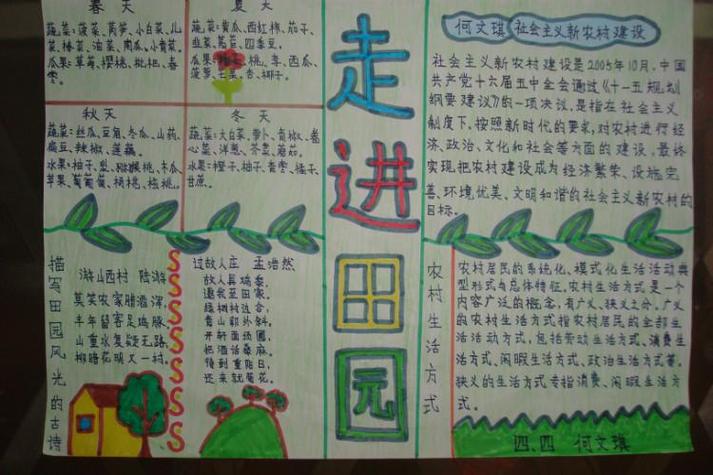 春天
蔬菜:菠菜、莴笋、小白菜、儿
菜、椿菜、油菜、南瓜、小青菜。
瓜果:草莓、樱桃、枇杷、春
枣。
夏天
蔬菜:黄瓜、西红柿、茄子、
韭菜、四季豆。
瓜果:桃、李、西瓜、
菠萝、芒果、杏、椰子。
秋天
蔬菜:丝瓜、豆角、冬瓜、山药、
扁豆、辣椒、莲藕。
水果:柚子、梨、猕猴桃、木瓜、
苹果、葡萄、核桃、
冬天
蔬菜:大白菜、萝卜、青椒、卷
心菜、洋葱、芥蓝、蘑菇。
水果:橙子、柚子、香蕉、橘子、
甘蔗。
走进田园
何文琪 社会主义新农村建设
社会主义新农村建设是2005年10月,中国
共产党十六届五中全会通过《十一五规划
纲要建议》的一项决议,是指在社会主义
制度下,按照新时代的要求,对农村进行经
济、政治、文化和社会等方面的建设,最终
实现把农村建设成为经济繁荣、设施完
善、环境优美、文明和谐的社会主义新农村的
目标。
描写田园风光的古诗
游山西村 陆游
莫笑农家腊酒浑,
丰年留客足鸡豚。
山重水复疑无路,
柳暗花明又一村。
过故人庄 孟浩然
故人具鸡黍,
邀我至田家。
绿树村边合,
青山郭外斜。
开轩面场圃,
把酒话桑麻。
待到重阳日,
还来就菊花。
农村生活方式
农村居民的系统化、模式化生活活动典
型形式与总体特征。农村生活方式是一个
内容广泛的概念,有广义、狭义之分。广义
的农村生活方式指农村居民的全部生
活活动方式,包括劳动生活方式、消费生
活方式、闲暇生活方式、政治生活方式等。
狭义的生活方式专指消费、闲暇生活方
式。
四、四 何文琪